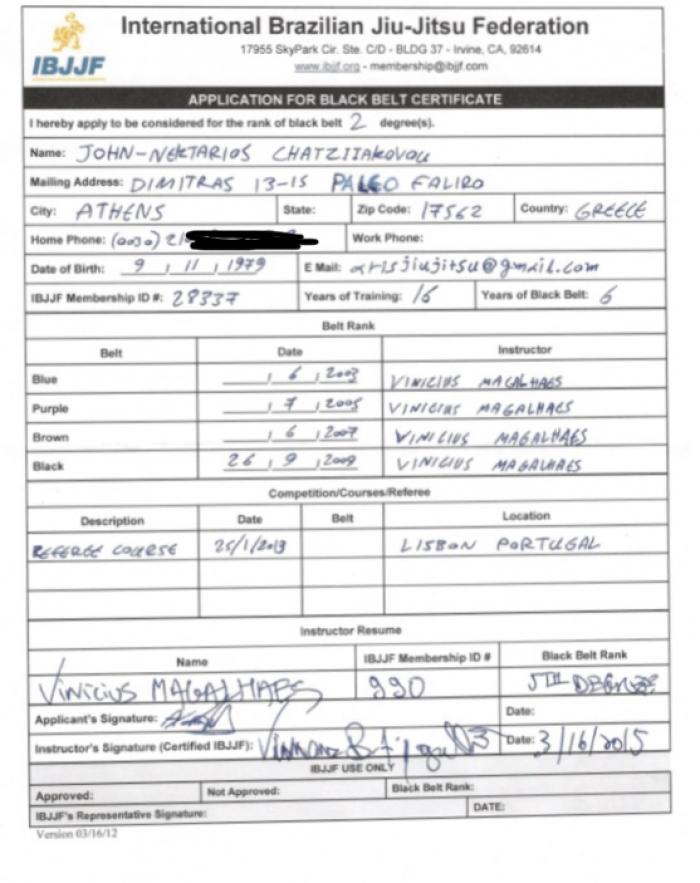 International Brazilian Jiu-Jitsu Federation
17955 SkyPark Cir. Ste. C/D - BLDG 37 - Irvine, CA, 92614
www.ibjjf.org - membership@ibjjf.com
IBJJF
APPLICATION FOR BLACK BELT CERTIFICATE
I hereby apply to be considered for the rank of black belt 2 degree(s).
Name: JOHN-NEKTARIOS CHATZIIAKOVOU
Mailing Address: DIMITRAS 13-15 PALEO FALIRO
City: ATHENS State: Zip Code: 17562 Country: GREECE
Home Phone: (0030) 21 Work Phone:
Date of Birth: 9 , 11 , 1979 E Mail: arisjiujitsu@gmail.com
IBJJF Membership ID #: 28337 Years of Training: 16 Years of Black Belt: 6
Belt Rank
Belt Date Instructor
Blue , 6 , 2003 VINICIUS MAGALHAES
Purple , 7 , 2005 VINICIUS MAGALHAES
Brown , 6 , 2007 VINICIUS MAGALHAES
Black 26 , 9 , 2009 VINICIUS MAGALHAES
Competition/Courses/Referee
Description Date Belt Location
REFEREE COURSE 25/1/2013 LISBON PORTUGAL
Instructor Resume
Name IBJJF Membership ID # Black Belt Rank
Vinicius MAGALHAES 990 5TH DEGREE
Applicant's Signature: Date:
Instructor's Signature (Certified IBJJF): Date: 3/16/2015
IBJJF USE ONLY
Approved: Not Approved: Black Belt Rank:
IBJJF's Representative Signature: DATE:
Version 03/16/12